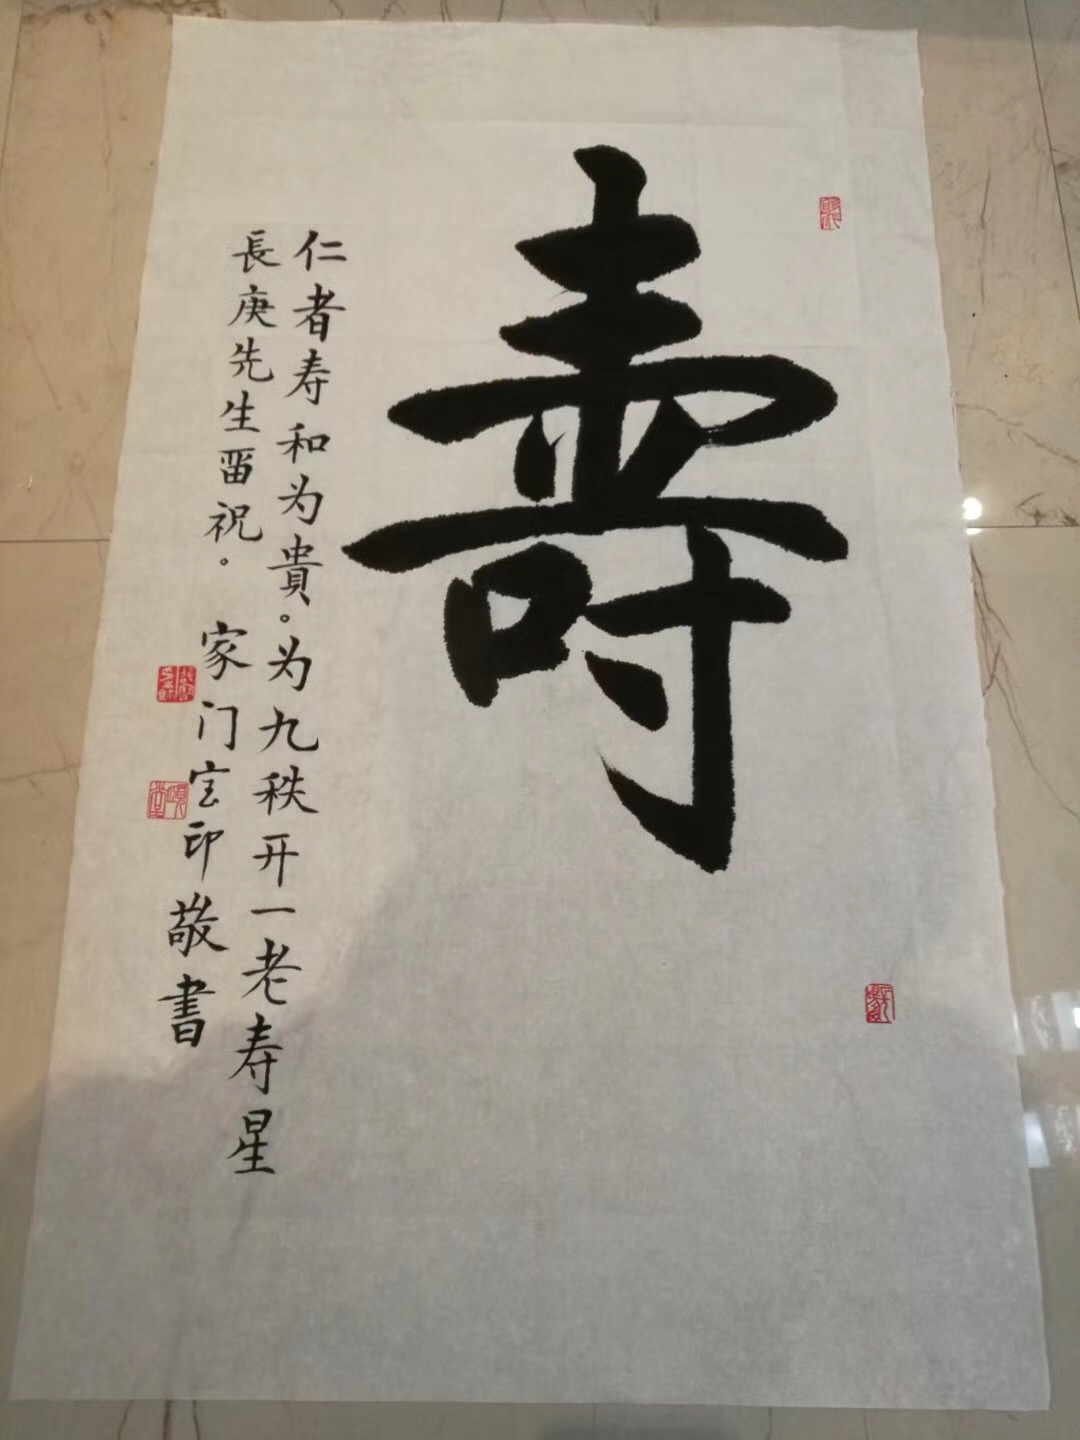 壽
仁者寿和为貴。为九秩开一老寿星
長庚先生畱祝。家门宝印敬書